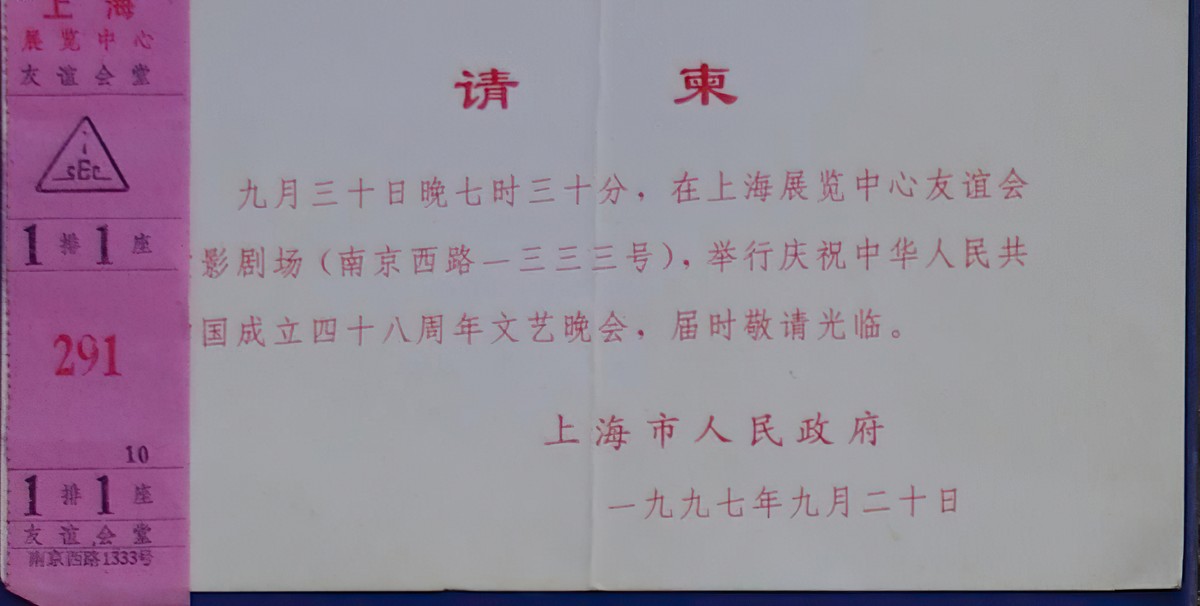 上海
展览中心
友谊会堂
sEc
1排1座
291
10
1排1座
友谊会堂
南京西路1333号
请柬
九月三十日晚七时三十分，在上海展览中心友谊会
影剧场（南京西路一三三三号），举行庆祝中华人民共
国成立四十八周年文艺晚会，届时敬请光临。
上海市人民政府
一九九七年九月二十日